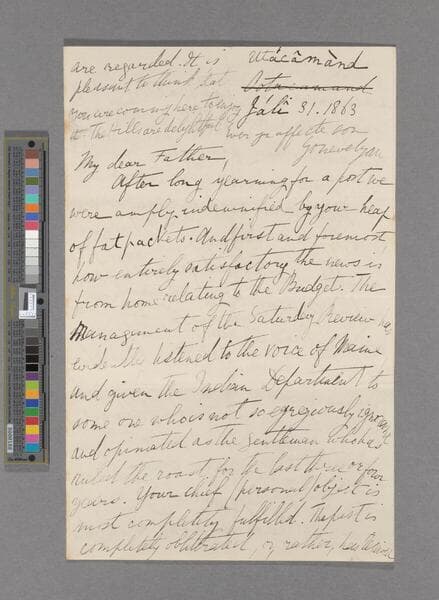 are regarded. It is
pleasant to think that
you are coming here to enjoy
it. The hills are delightful
Ever yr affecte son
G Trevelyan
Utácāmànd
Ootacamand
Júlī 31. 1863
My dear Father,
After long yearning for a post we
were amply indemnified by your heap
of fat packets. And first and foremost,
how entirely satisfactory the news is
from home relating to the Budget. The
Management of the Saturday Review has
evidently listened to the voice of Maine
and given the Indian Department to
some one who is not so egregiously ignorant
and opinionated as the gentleman who has
ruled the roast for the last three or four
years. Your chief (personal) object is
most completely fulfilled. The past is
completely obliterated, or rather, has